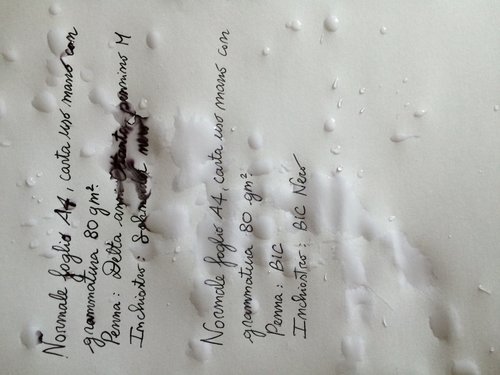 Normale foglio A4, carta uso mano con
grammatura 80 gm²
Penna: Delta anni pennino M
Inchiostro: nero
Normale foglio A4, carta uso mano con
grammatura 80 gm²
Penna: BIC
Inchiostro: BIC Nero